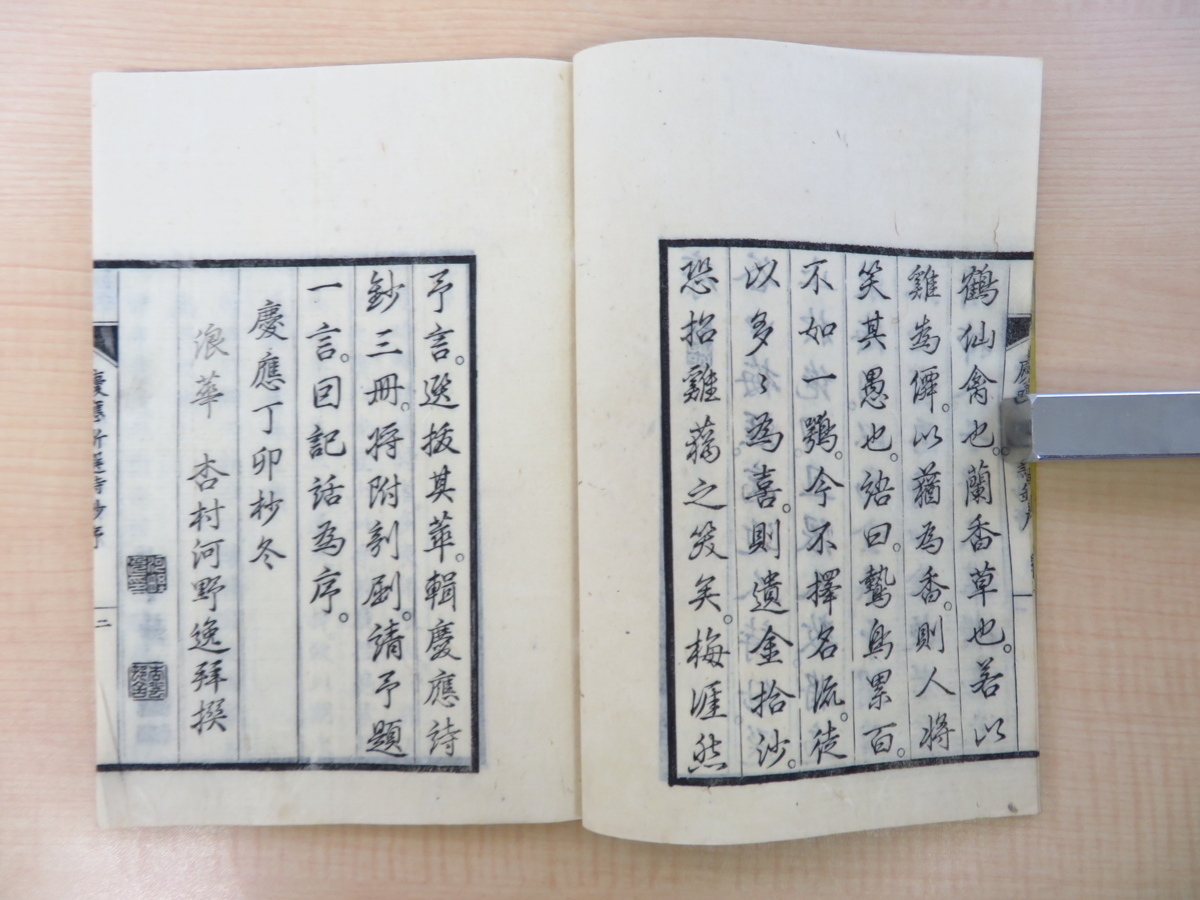 鶴仙禽也。蘭香草也。若以
雞為僊。以蕕為香。則人將
笑其愚也。語曰。鷙鳥累百。
不如一鶚。今不擇名流。徒
以多々為喜。則遺金拾沙。
恐招雞蕕之笑矣。梅涯然
予言。選拔其華。輯慶應詩
鈔三冊。將附剞劂。請予題
一言。因記話為序。
慶應丁卯杪冬
浪華 杏村河野逸拜撰
慶應新選詩鈔序
二